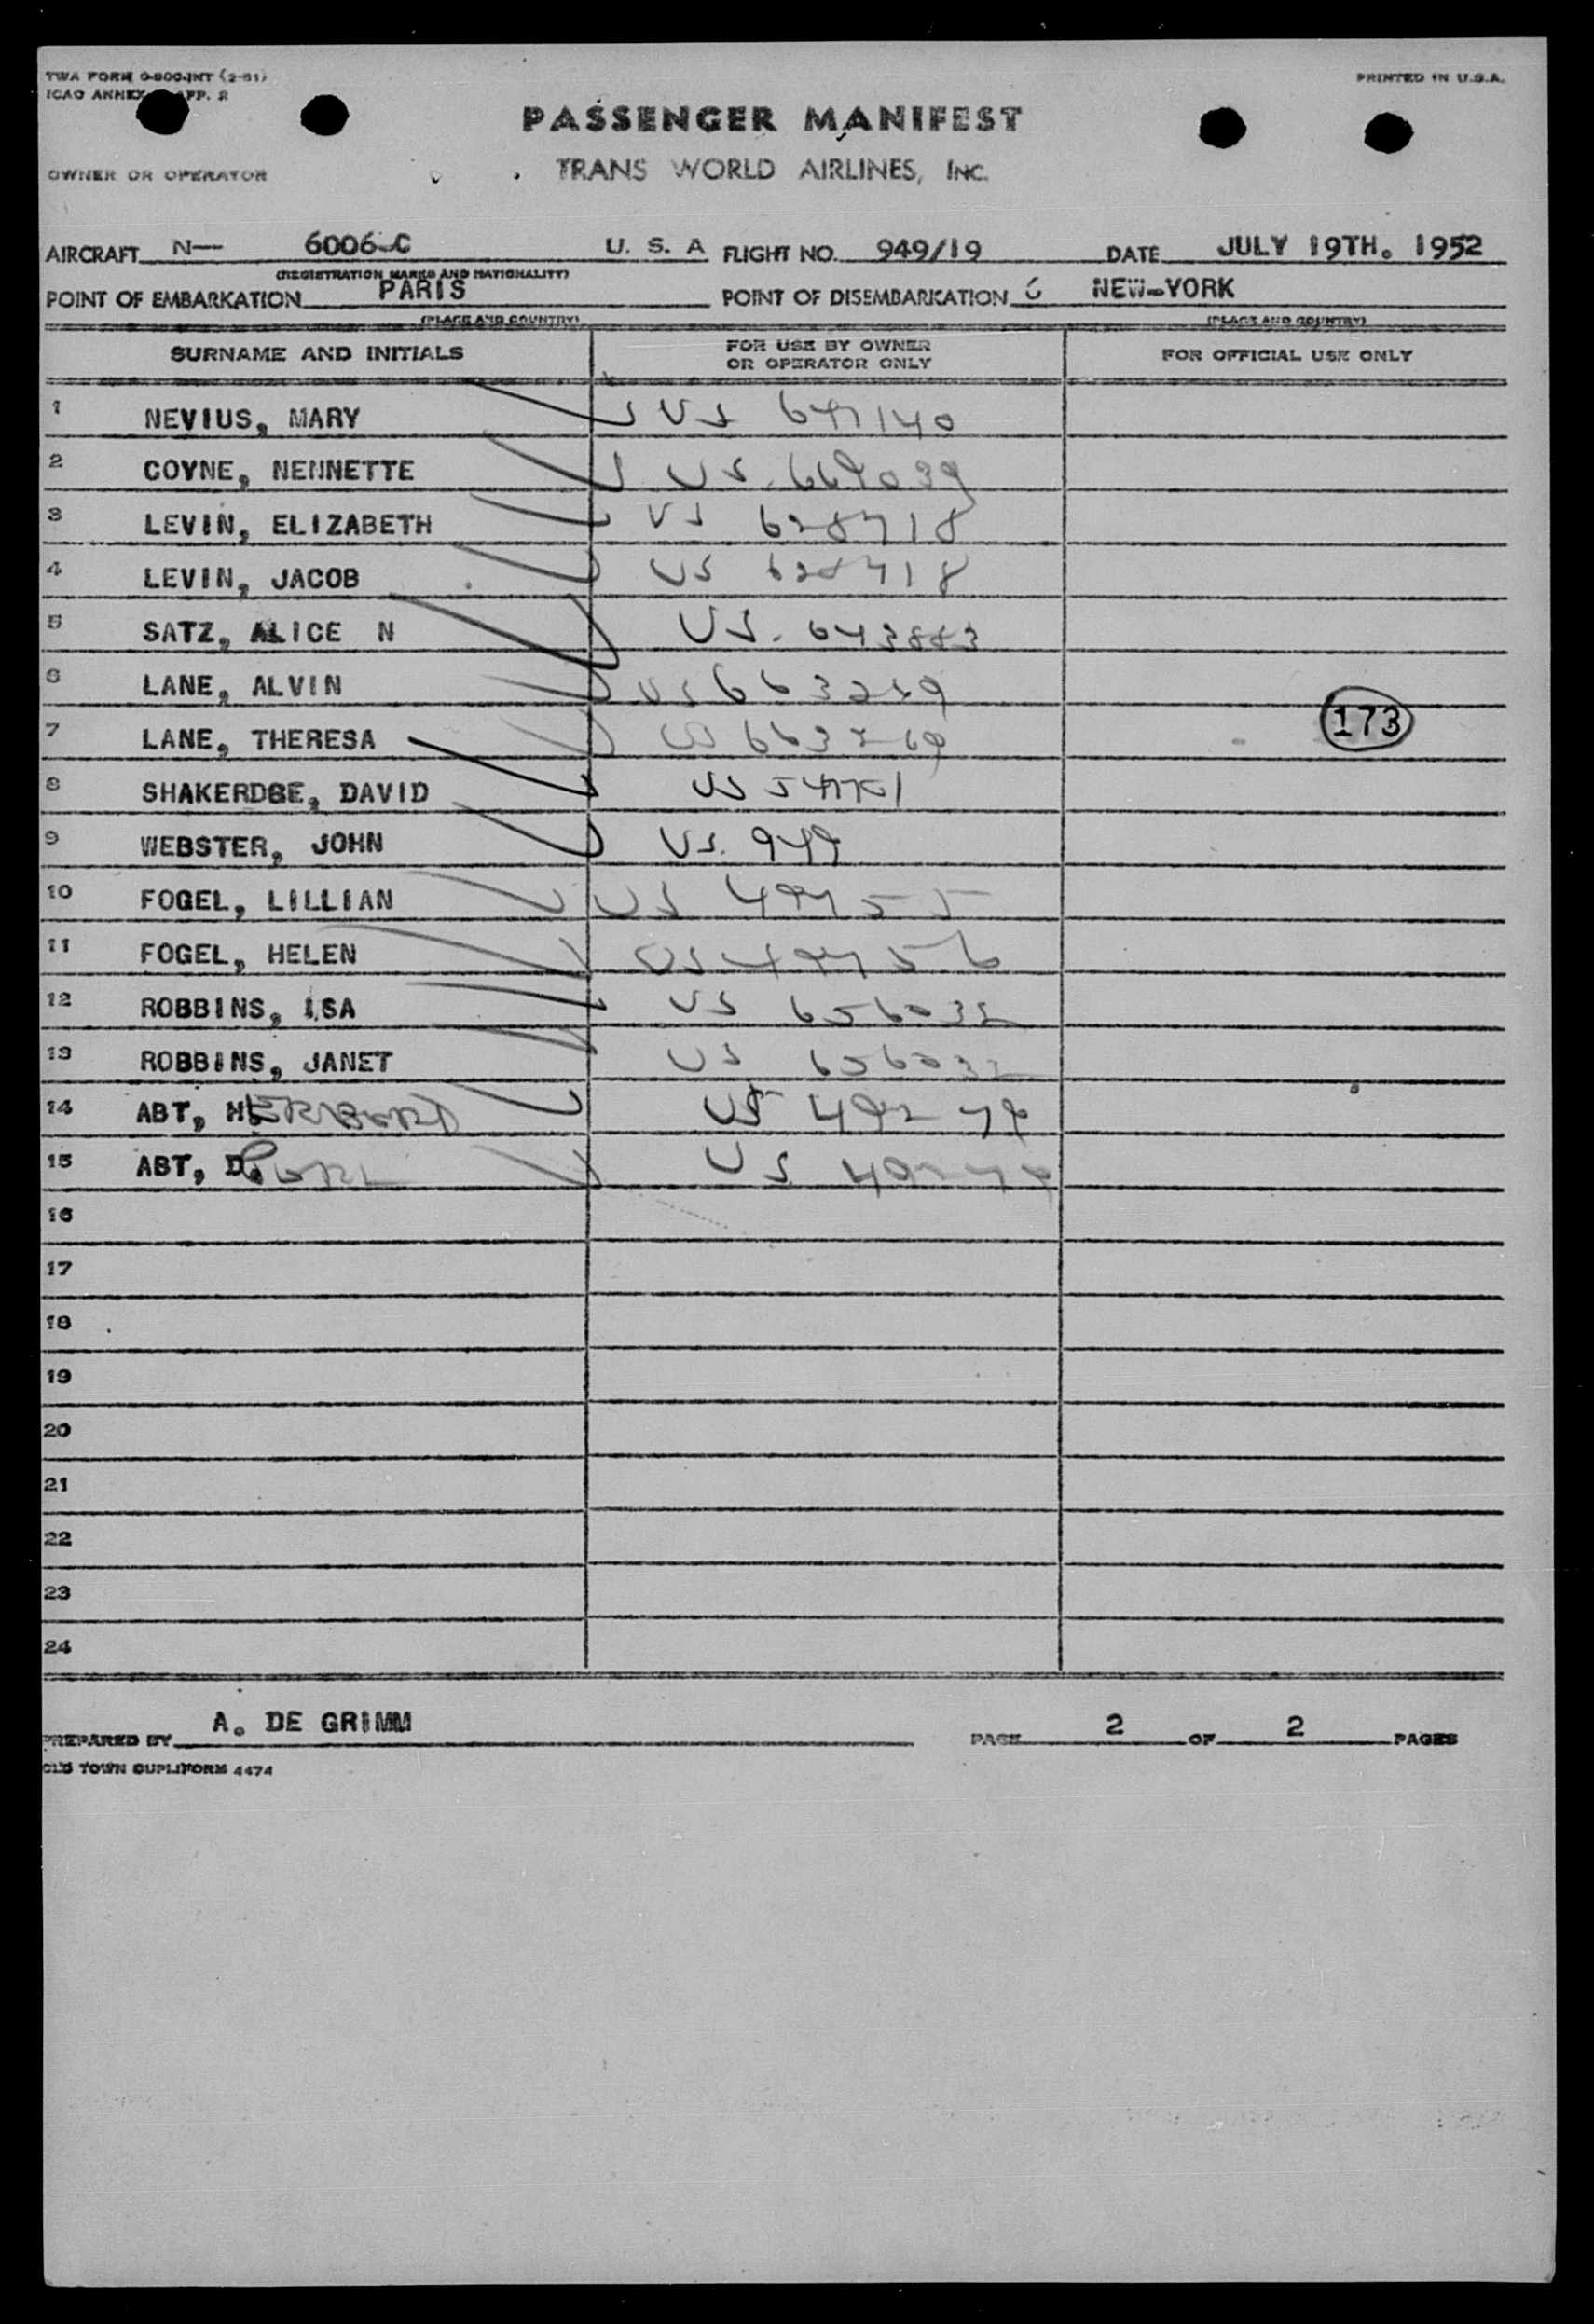 TWA FORM O-800-INT (2-51)
ICAO ANNEX APP. 2
PRINTED IN U.S.A.
PASSENGER MANIFEST
OWNER OR OPERATOR
TRANS WORLD AIRLINES, INC.
AIRCRAFT N— 6006-C U. S. A FLIGHT NO. 949/19 DATE JULY 19TH. 1952
(REGISTRATION MARKS AND NATIONALITY)
POINT OF EMBARKATION PARIS POINT OF DISEMBARKATION NEW-YORK
(PLACE AND COUNTRY) (PLACE AND COUNTRY)
SURNAME AND INITIALS FOR USE BY OWNER OR OPERATOR ONLY FOR OFFICIAL USE ONLY
1 NEVIUS, MARY US 647140
2 COYNE, NENNETTE US 669039
3 LEVIN, ELIZABETH US 628718
4 LEVIN, JACOB US 628718
5 SATZ, ALICE N US. 643883
6 LANE, ALVIN US 663269
7 LANE, THERESA US 663269 173
8 SHAKERDGE, DAVID US
9 WEBSTER, JOHN US. 949
10 FOGEL, LILLIAN US 49755
11 FOGEL, HELEN US 49756
12 ROBBINS, ISA US 656032
13 ROBBINS, JANET US 656032
14 ABT, HERBERT US 49279
15 ABT, D. US
16
17
18
19
20
21
22
23
24
PREPARED BY A. DE GRIMM PAGE 2 OF 2 PAGES
OLD TOWN DUPLIFORM 4474